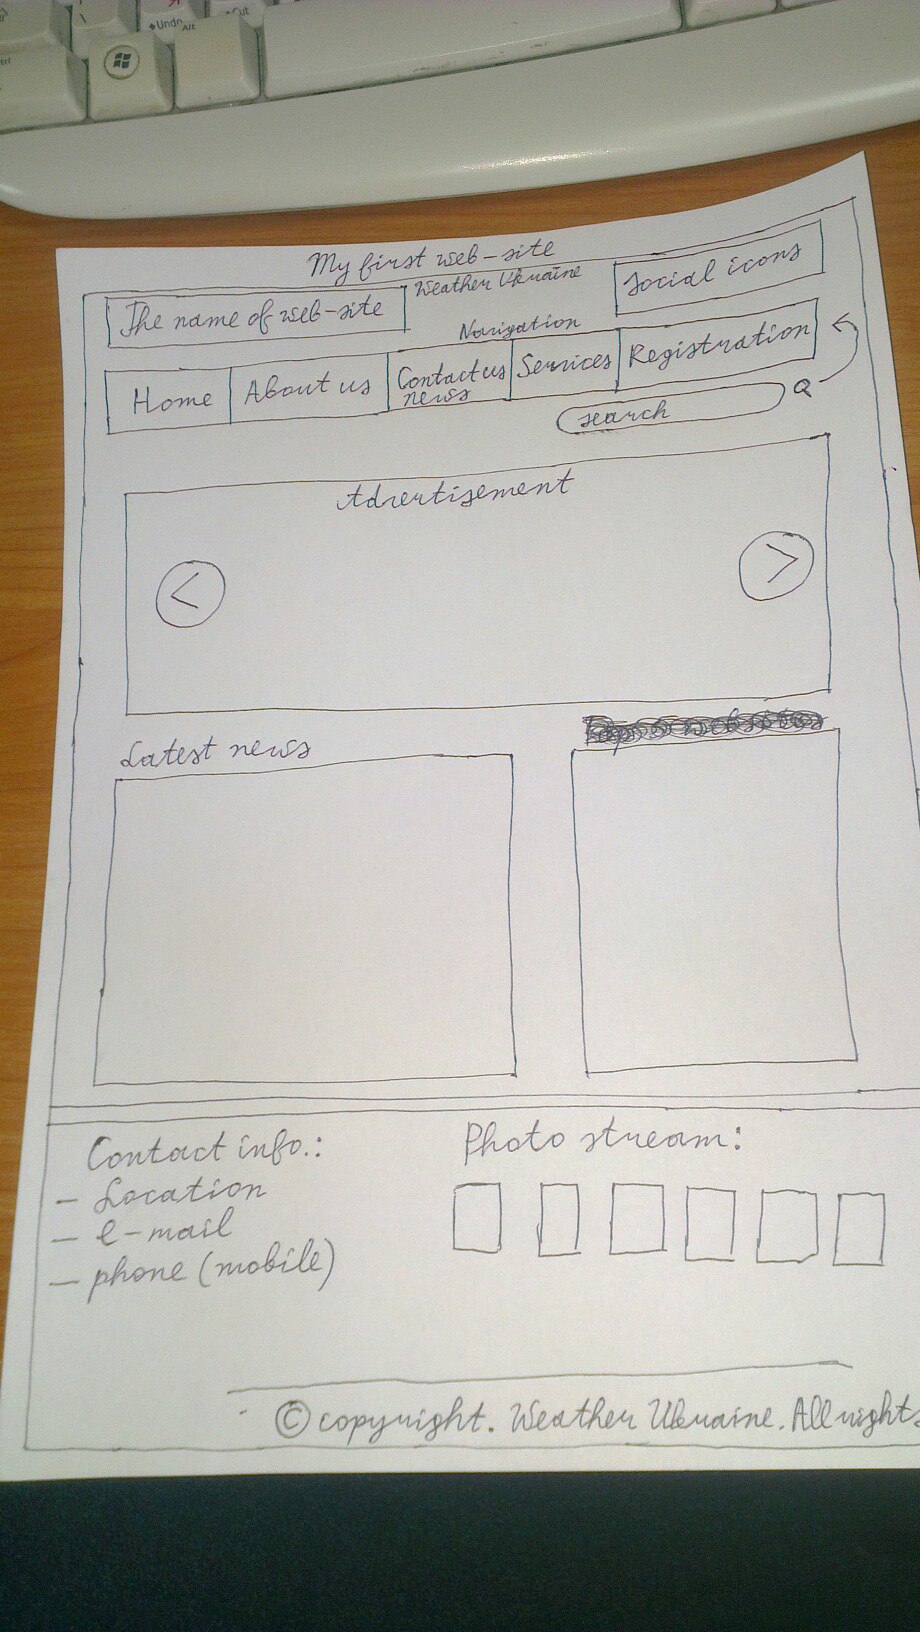 Undo
Alt
Cut
trl
My first web-site
The name of web-site
Weather Ukraine
Social icons
Navigation
Home
About us
Contact us
news
Services
Registration
search
Advertisement
<
>
Latest news
Contact info.:
- Location
- e-mail
- phone (mobile)
Photo stream:
© copyright. Weather Ukraine. All rights